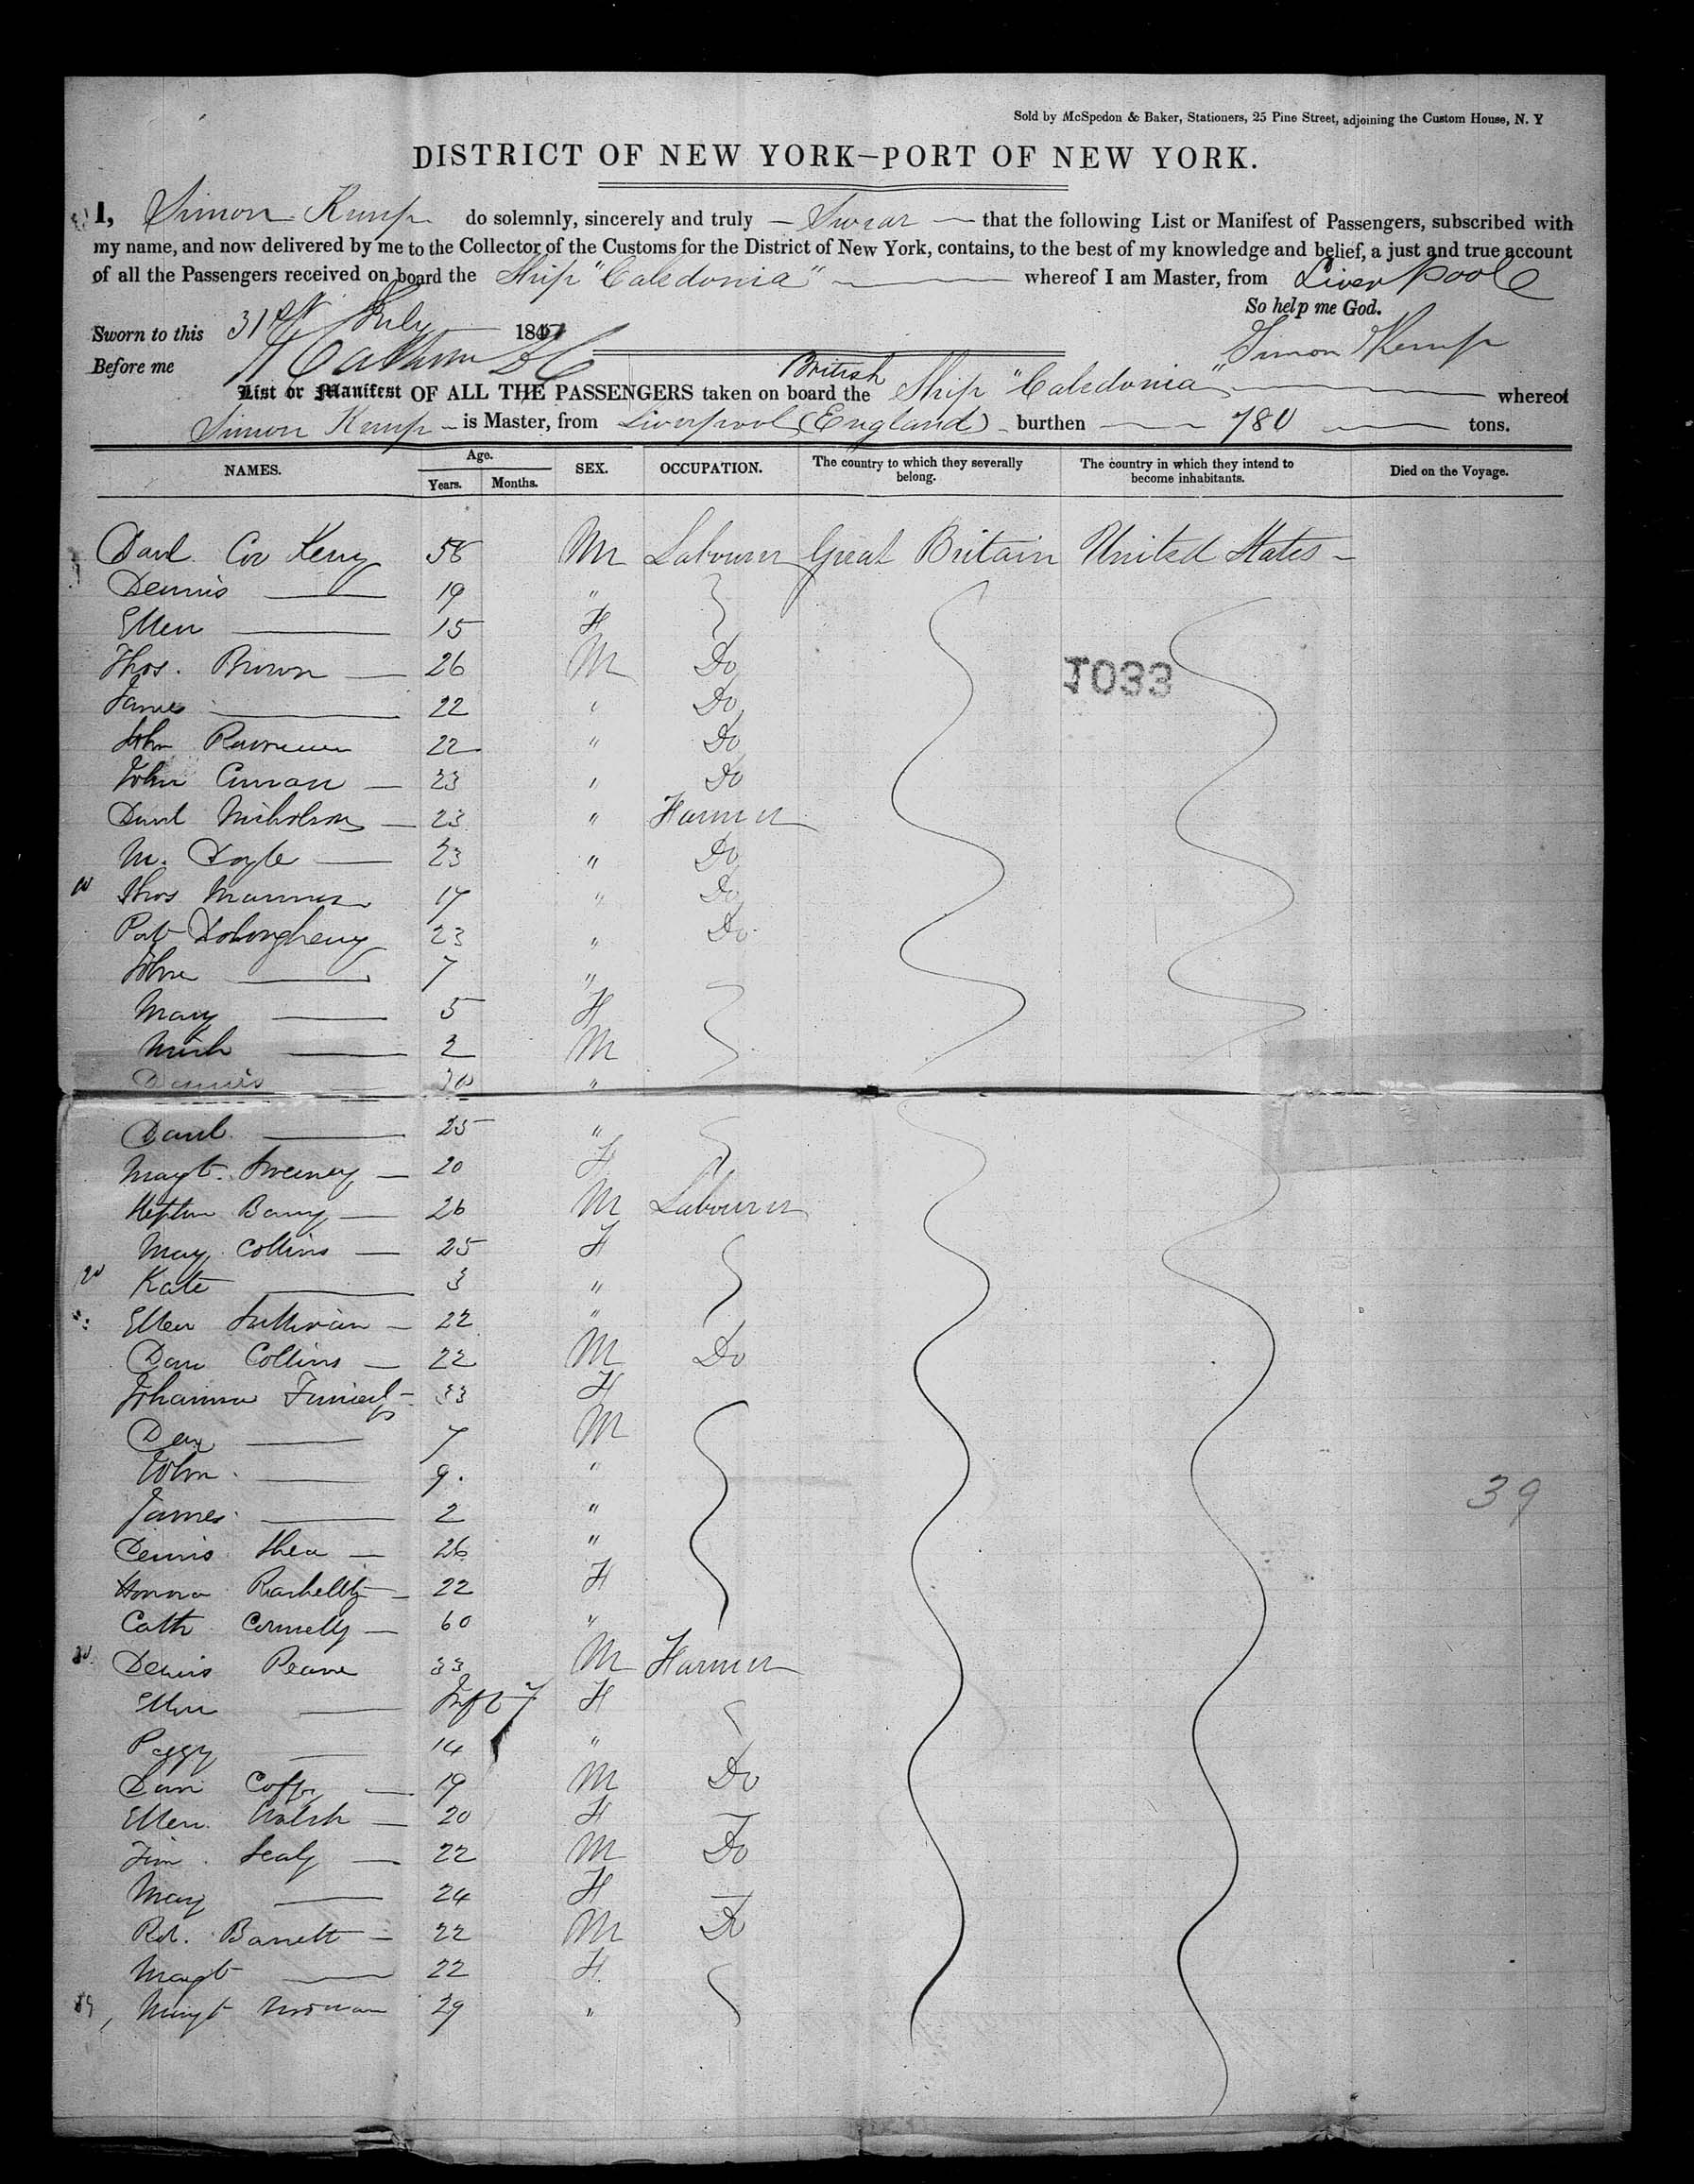 Sold by McSpedon & Baker, Stationers, 25 Pine Street, adjoining the Custom House, N. Y
DISTRICT OF NEW YORK—PORT OF NEW YORK.
I, Simon Kemp do solemnly, sincerely and truly — Swear — that the following List or Manifest of Passengers, subscribed with
my name, and now delivered by me to the Collector of the Customs for the District of New York, contains, to the best of my knowledge and belief, a just and true account
of all the Passengers received on board the Ship "Caledonia" whereof I am Master, from Liverpoole
So help me God.
Sworn to this 31st July 1847
Simon Kemp
Before me
List or Manifest OF ALL THE PASSENGERS taken on board the British Ship "Caledonia" whereof
Simon Kemp is Master, from Liverpool (England) burthen 780 tons.
NAMES. Age. Years. Months. SEX. OCCUPATION. The country to which they severally belong. The country in which they intend to become inhabitants. Died on the Voyage.
Danl. Kerry 56 M Labourer Great Britain United States
Dennis 19 "
Ellen 15 F
Thos. Brown 26 M Do
1033
James 22 " Do
John 22 " Do
John Curran 23 " Do
Danl Nicholson 23 " Farmer
M. Doyle 23 " Do
10 Thos 17 " Do
Pat 23 " Do
John 7 "
Mary 5 F
Mich 2 M
Dennis 30 "
Danl 25 "
Magt. Sweeney 20 F
Barry 26 M Labourer
Mary Collins 25 F
20 Kate 3 "
Ellen Sullivan 22 "
Dan Collins 22 M Do
Johanna 33 F
Dan 7 M
John 9. "
James 2 "
39
Dennis Shea 26 "
Honna 22 F
Cath Connelly 60 "
30 Dennis 33 M Farmer
Ellen Inft 7 F
Peggy 14 "
Dan Coffy 19 M Do
Ellen Walsh 20 F
Tim. Sealy 22 M Do
Mary 24 F
Rd. Barrett 22 M Do
Magt 22 F
39 Magt 29 "